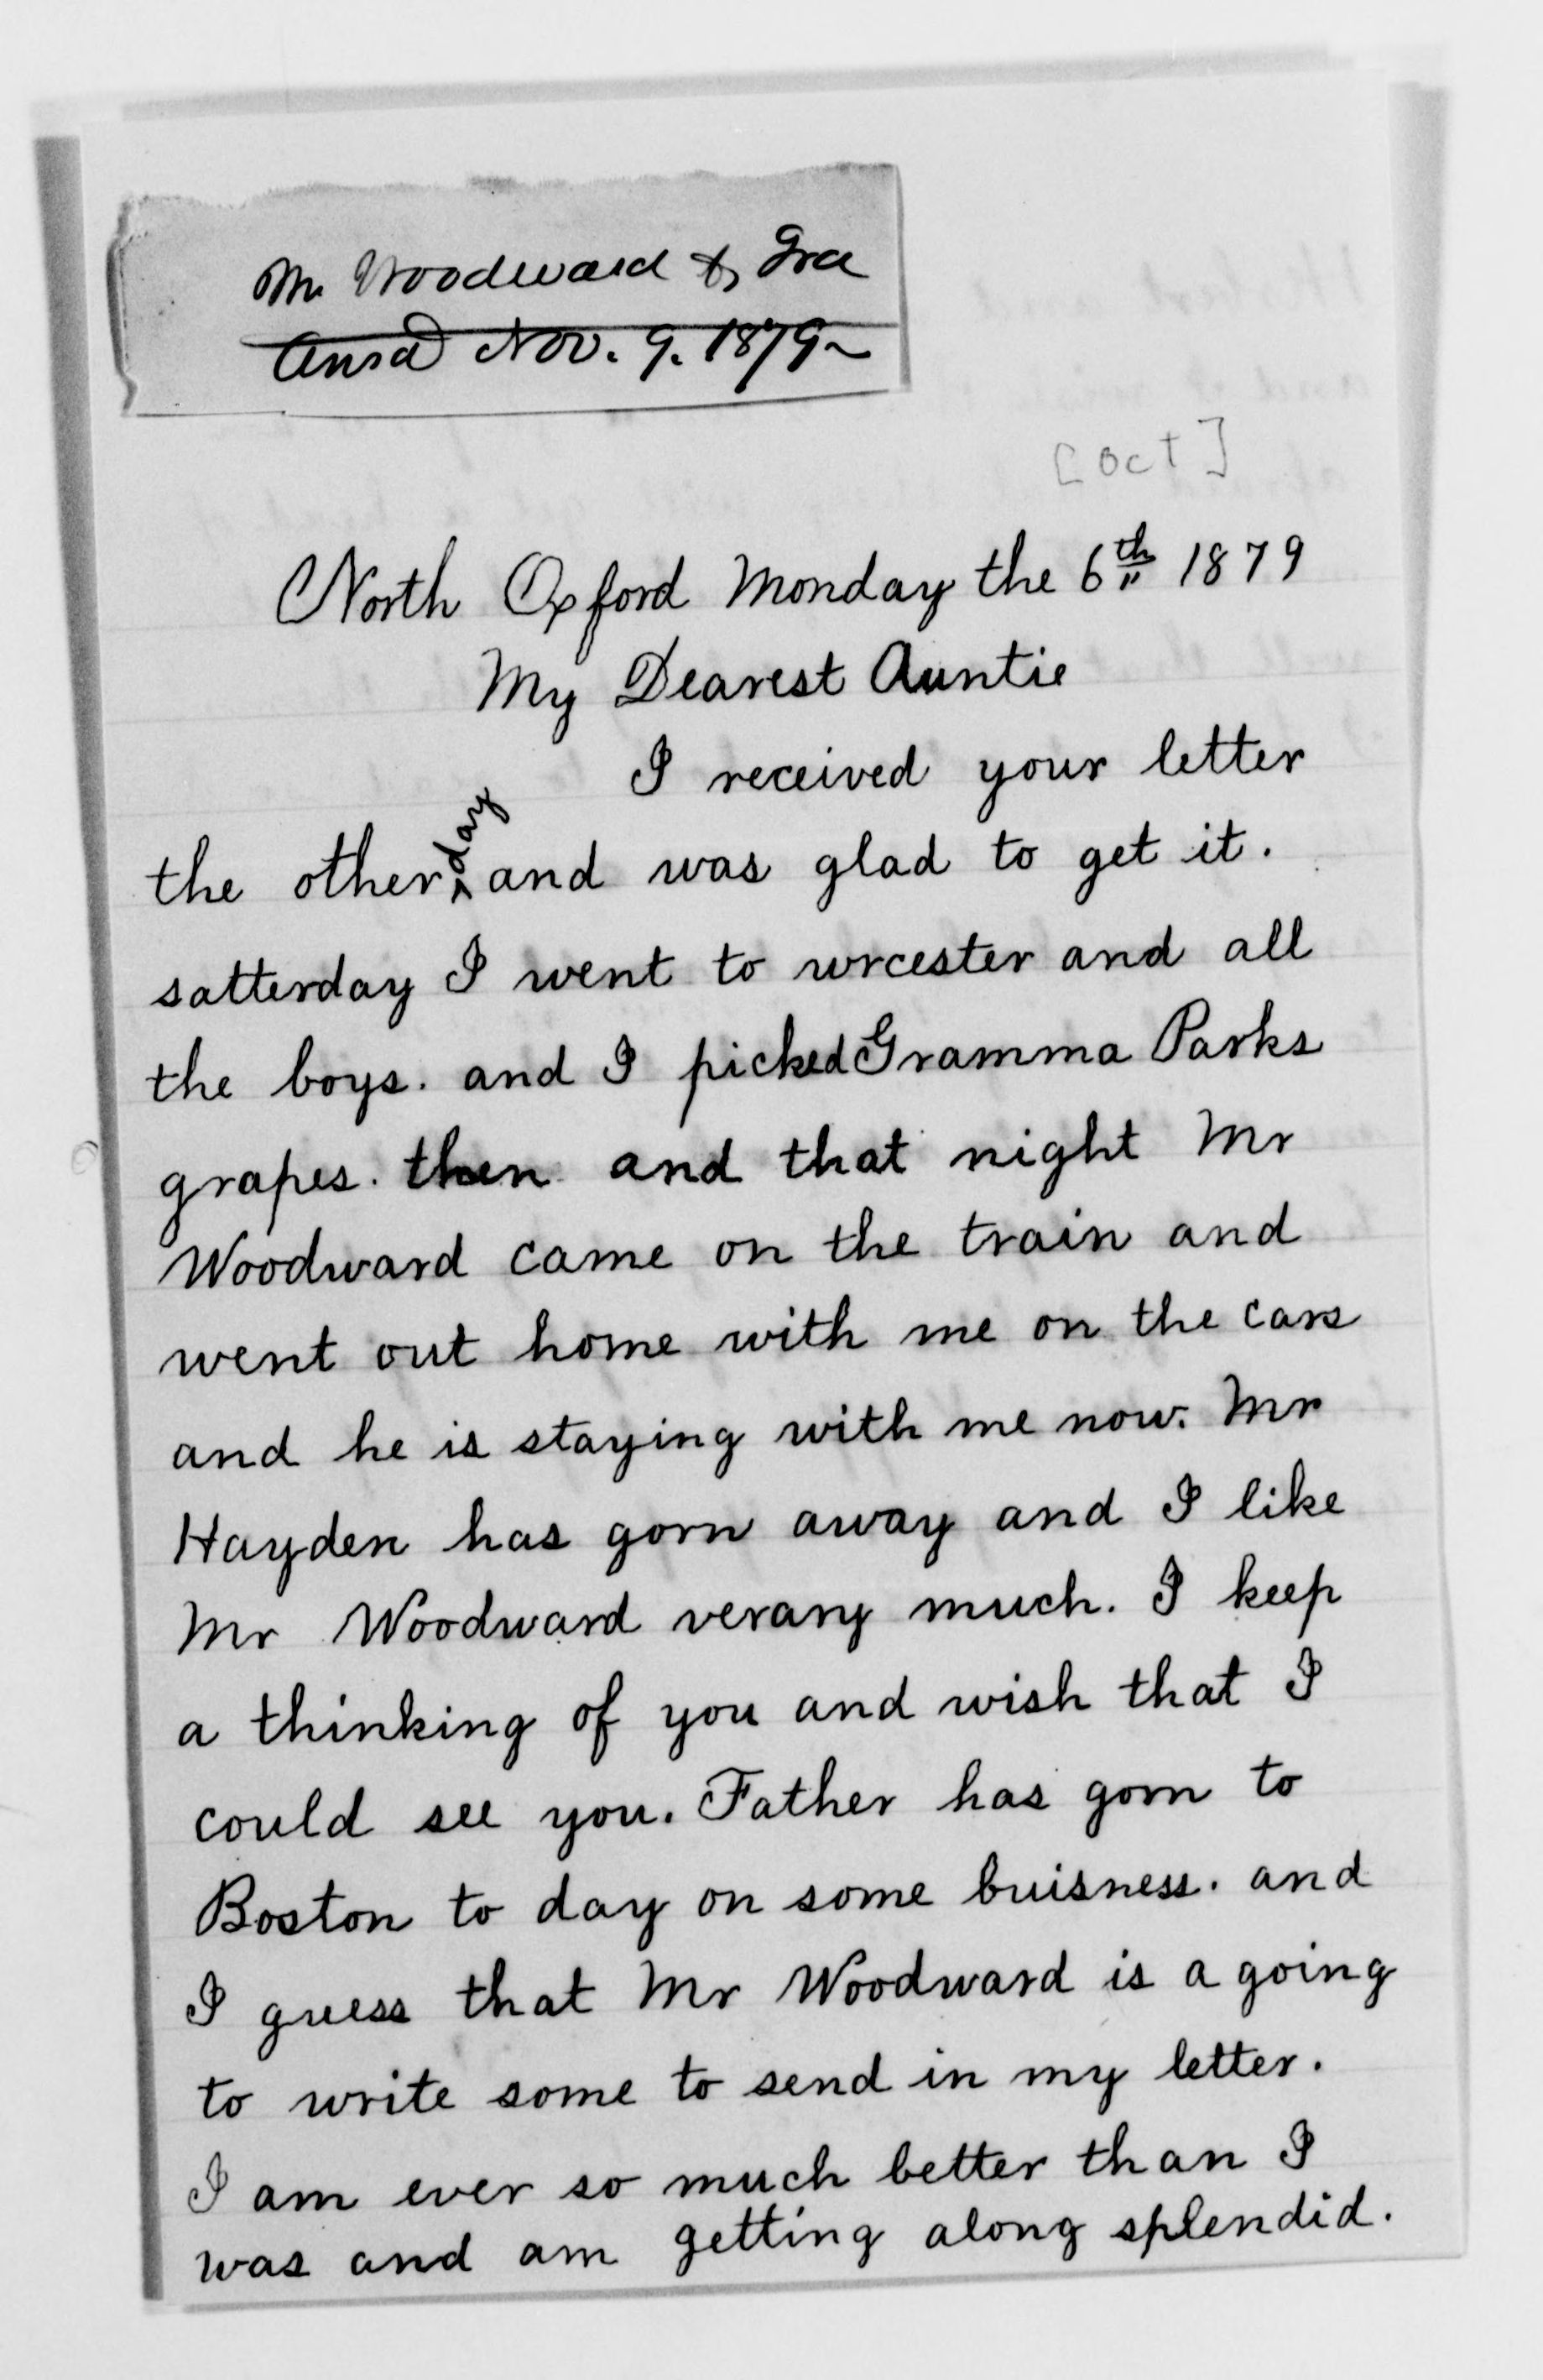 Mr. Woodward & Ira
Ansd Nov. 9. 1879
[Oct]
North Oxford Monday the 6th 1879
My Dearest Auntie
I received your letter
the other day and was glad to get it.
satterday I went to wrcester and all
the boys. and I picked Gramma Parks
grapes. then and that night Mr
Woodward came on the train and
went out home with me on the cars
and he is staying with me now. Mr
Hayden has gorn away and I like
Mr Woodward verary much. I keep
a thinking of you and wish that I
could see you. Father has gorn to
Boston to day on some buisness. and
I guess that Mr Woodward is a going
to write some to send in my letter.
I am ever so much better than I
was and am getting along splendid.